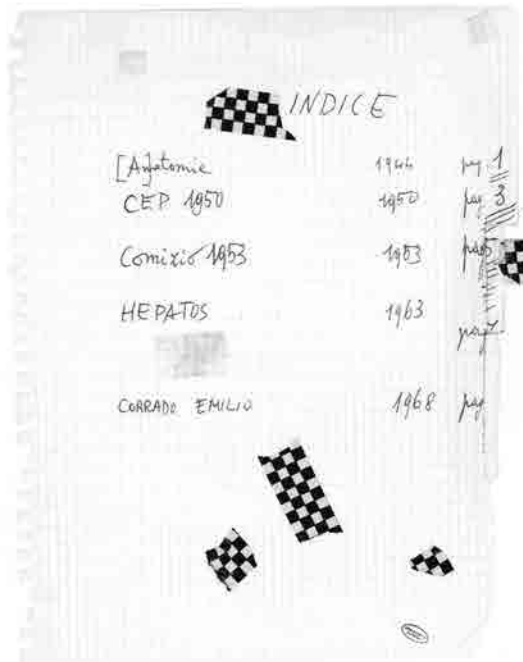 INDICE
[Anatomie 1944 pag. 1
CEP 1950 1950 pag 3
Comizio 1953 1953 pag 5
HEPATOS 1963
pag 7
CORRADO EMILIO 1968 pag